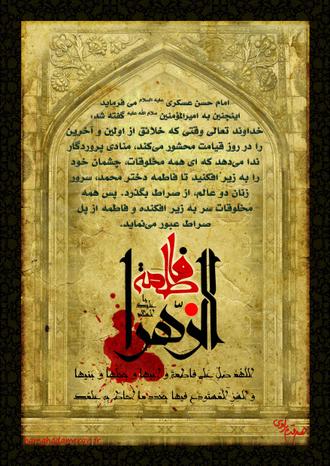 امام حسن عسکری علیه السلام می فرماید
اینچنین به امیرالمؤمنین سلام الله علیه گفته شد،
خداوند تعالی وقتی که خلائق از اولین و آخرین
را در روز قیامت محشور می‌کند، منادی پروردگار
ندا می‌دهد که ای همه مخلوقات، چشمان خود
را به زیر افکنید تا فاطمه دختر محمد، سرور
زنان دو عالم، از صراط بگذرد. پس همه
مخلوقات سر به زیر افکنده و فاطمه از پل
صراط عبور می‌نماید.
فاطمة
الزهرا
اللهم صل علی فاطمة و ابیها و بعلها و بنیها
و السر المستودع فیها بعدد ما احاط به علمک